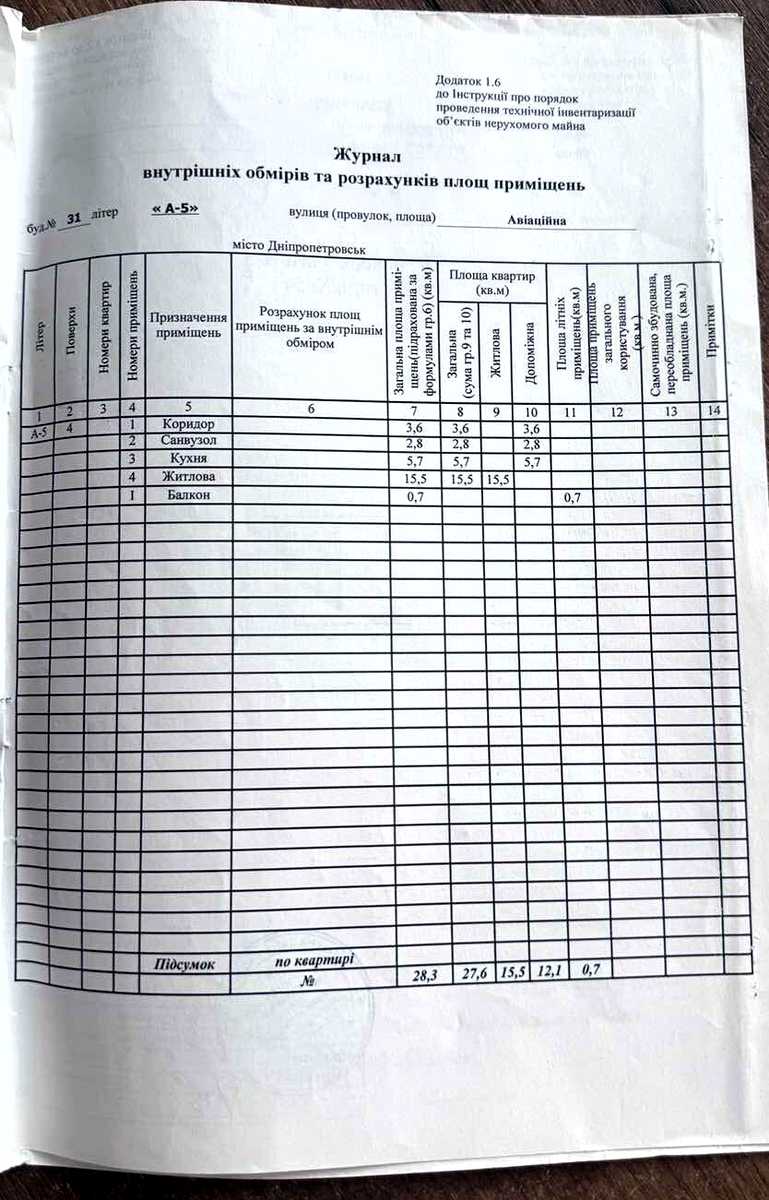 Додаток 1.6
до Інструкції про порядок
проведення технічної інвентаризації
об'єктів нерухомого майна
Журнал
внутрішніх обмірів та розрахунків площ приміщень
буд.№ 31 літер « А-5» вулиця (провулок, площа) Авіаційна
місто Дніпропетровськ
Літер
Поверхи
Номери квартир
Номери приміщень
Призначення
приміщень
Розрахунок площ
приміщень за внутрішнім
обміром
Загальна площа примі-
щень(підрахована за
формулами гр.6) (кв.м)
Площа квартир
(кв.м)
Загальна
(сума гр.9 та 10)
Житлова
Допоміжна
Площа літніх
приміщень(кв.м)
Площа приміщень
загального
користування
(кв.м.)
Самочинно збудована,
переобладнана площа
приміщень (кв.м.)
Примітки
1 2 3 4 5 6 7 8 9 10 11 12 13 14
А-5 4 1 Коридор 3,6 3,6 3,6
2 Санвузол 2,8 2,8 2,8
3 Кухня 5,7 5,7 5,7
4 Житлова 15,5 15,5 15,5
I Балкон 0,7 0,7
Підсумок по квартирі
№ 28,3 27,6 15,5 12,1 0,7